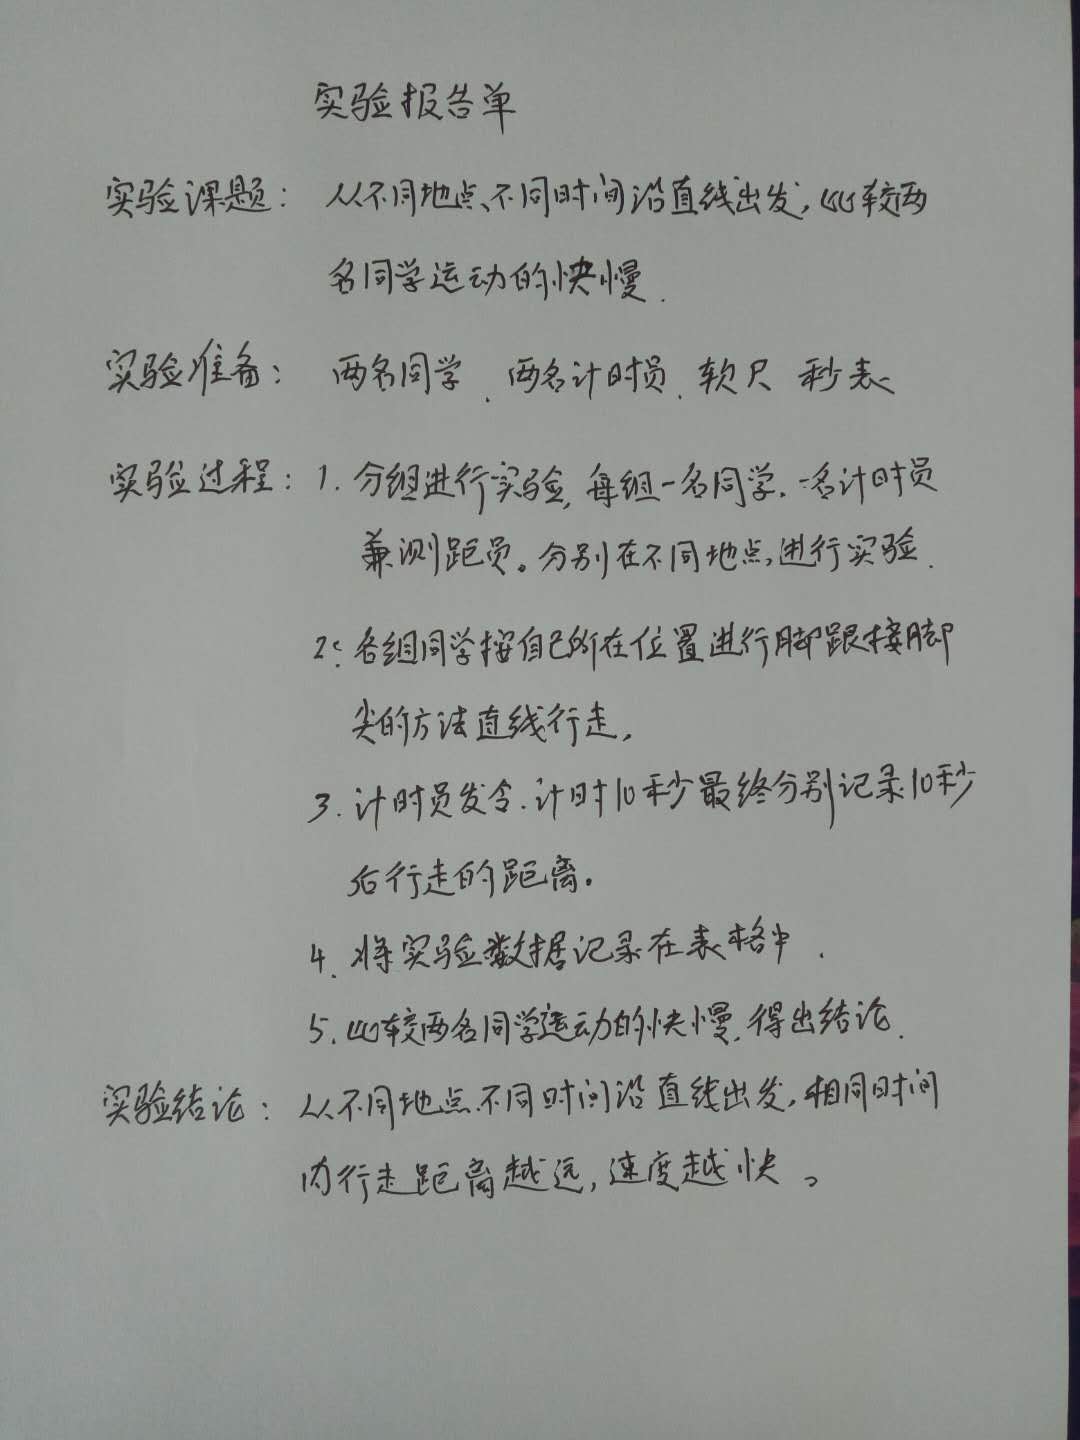 实验报告单
实验课题：从不同地点、不同时间沿直线出发，比较两
名同学运动的快慢.
实验准备：两名同学、两名计时员、软尺 秒表
实验过程：1. 分组进行实验，每组一名同学、一名计时员
兼测距员。分别在不同地点，进行实验.
2. 各组同学按自己所在位置进行脚跟接脚
尖的方法直线行走，
3. 计时员发令.计时10秒最终分别记录10秒
后行走的距离。
4. 将实验数据记录在表格中.
5. 比较两名同学运动的快慢，得出结论.
实验结论：从不同地点.不同时间沿直线出发，相同时间
内行走距离越远，速度越快。